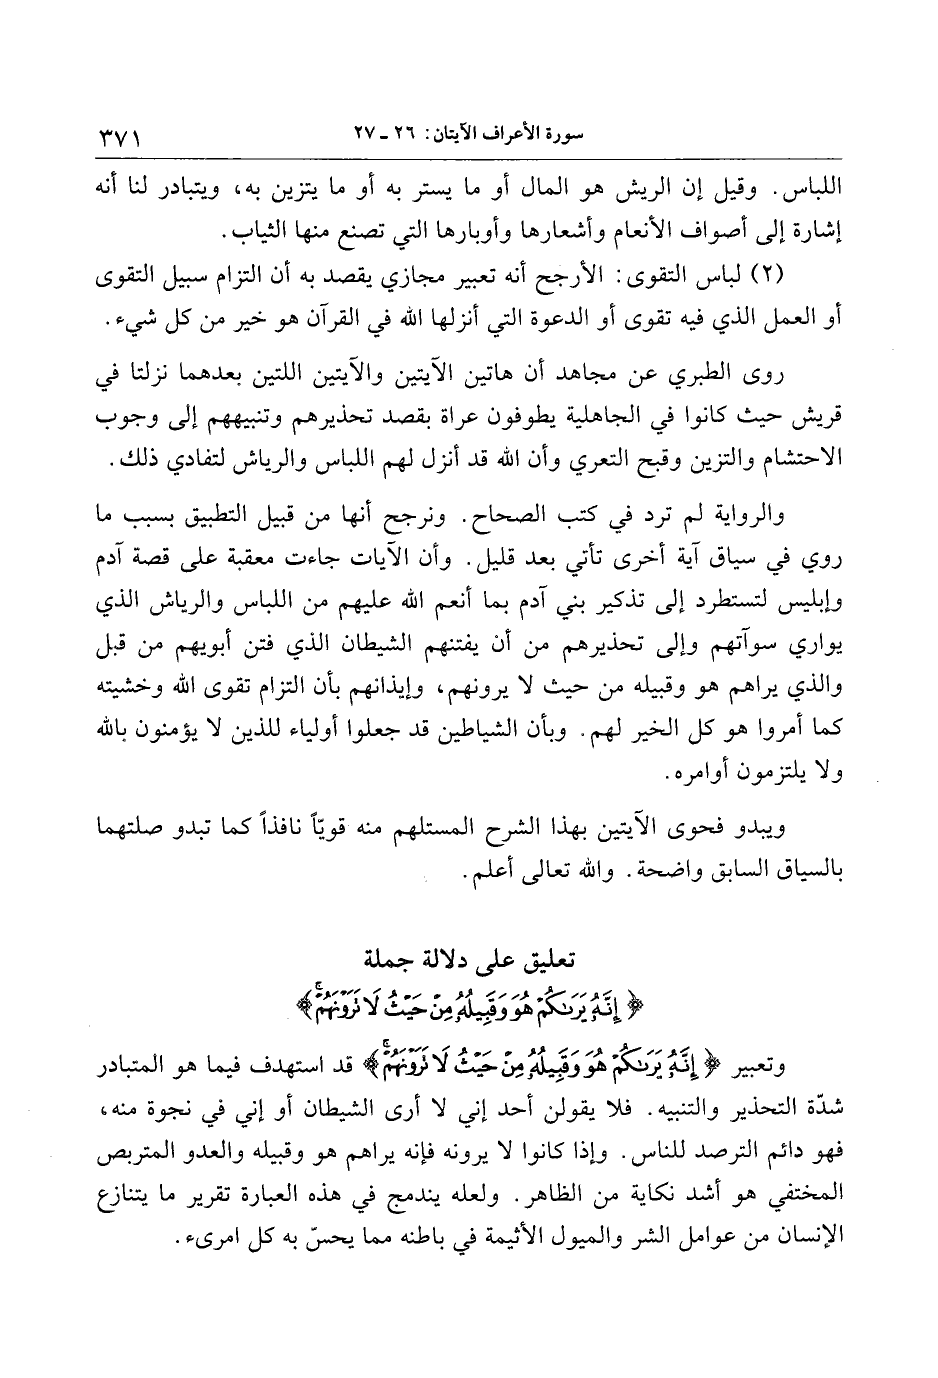 سورة الأعراف الآيتان: ٢٦ ـ ٢٧ ٣٧١
اللباس. وقيل إن الريش هو المال أو ما يستر به أو ما يتزين به، ويتبادر لنا أنه
إشارة إلى أصواف الأنعام وأشعارها وأوبارها التي تصنع منها الثياب.
(٢) لباس التقوى: الأرجح أنه تعبير مجازي يقصد به أن التزام سبيل التقوى
أو العمل الذي فيه تقوى أو الدعوة التي أنزلها الله في القرآن هو خير من كل شيء.
روى الطبري عن مجاهد أن هاتين الآيتين والآيتين اللتين بعدهما نزلتا في
قريش حيث كانوا في الجاهلية يطوفون عراة بقصد تحذيرهم وتنبيههم إلى وجوب
الاحتشام والتزين وقبح التعري وأن الله قد أنزل لهم اللباس والرياش لتفادي ذلك.
والرواية لم ترد في كتب الصحاح. ونرجح أنها من قبيل التطبيق بسبب ما
روي في سياق آية أخرى تأتي بعد قليل. وأن الآيات جاءت معقبة على قصة آدم
وإبليس لتستطرد إلى تذكير بني آدم بما أنعم الله عليهم من اللباس والرياش الذي
يواري سوآتهم وإلى تحذيرهم من أن يفتنهم الشيطان الذي فتن أبويهم من قبل
والذي يراهم هو وقبيله من حيث لا يرونهم، وإيذانهم بأن التزام تقوى الله وخشيته
كما أمروا هو كل الخير لهم. وبأن الشياطين قد جعلوا أولياء للذين لا يؤمنون بالله
ولا يلتزمون أوامره.
ويبدو فحوى الآيتين بهذا الشرح المستلهم منه قويّاً نافذاً كما تبدو صلتهما
بالسياق السابق واضحة. والله تعالى أعلم.
تعليق على دلالة جملة
﴿إِنَّهُ يَرَىٰكُمْ هُوَ وَقَبِيلُهُ مِنْ حَيْثُ لَا تَرَوْنَهُمْ﴾
وتعبير ﴿إِنَّهُ يَرَىٰكُمْ هُوَ وَقَبِيلُهُ مِنْ حَيْثُ لَا تَرَوْنَهُمْ﴾ قد استهدف فيما هو المتبادر
شدّة التحذير والتنبيه. فلا يقولن أحد إني لا أرى الشيطان أو إني في نجوة منه،
فهو دائم الترصد للناس. وإذا كانوا لا يرونه فإنه يراهم هو وقبيله والعدو المتربص
المختفي هو أشد نكاية من الظاهر. ولعله يندمج في هذه العبارة تقرير ما يتنازع
الإنسان من عوامل الشر والميول الأثيمة في باطنه مما يحسّ به كل امرىء.